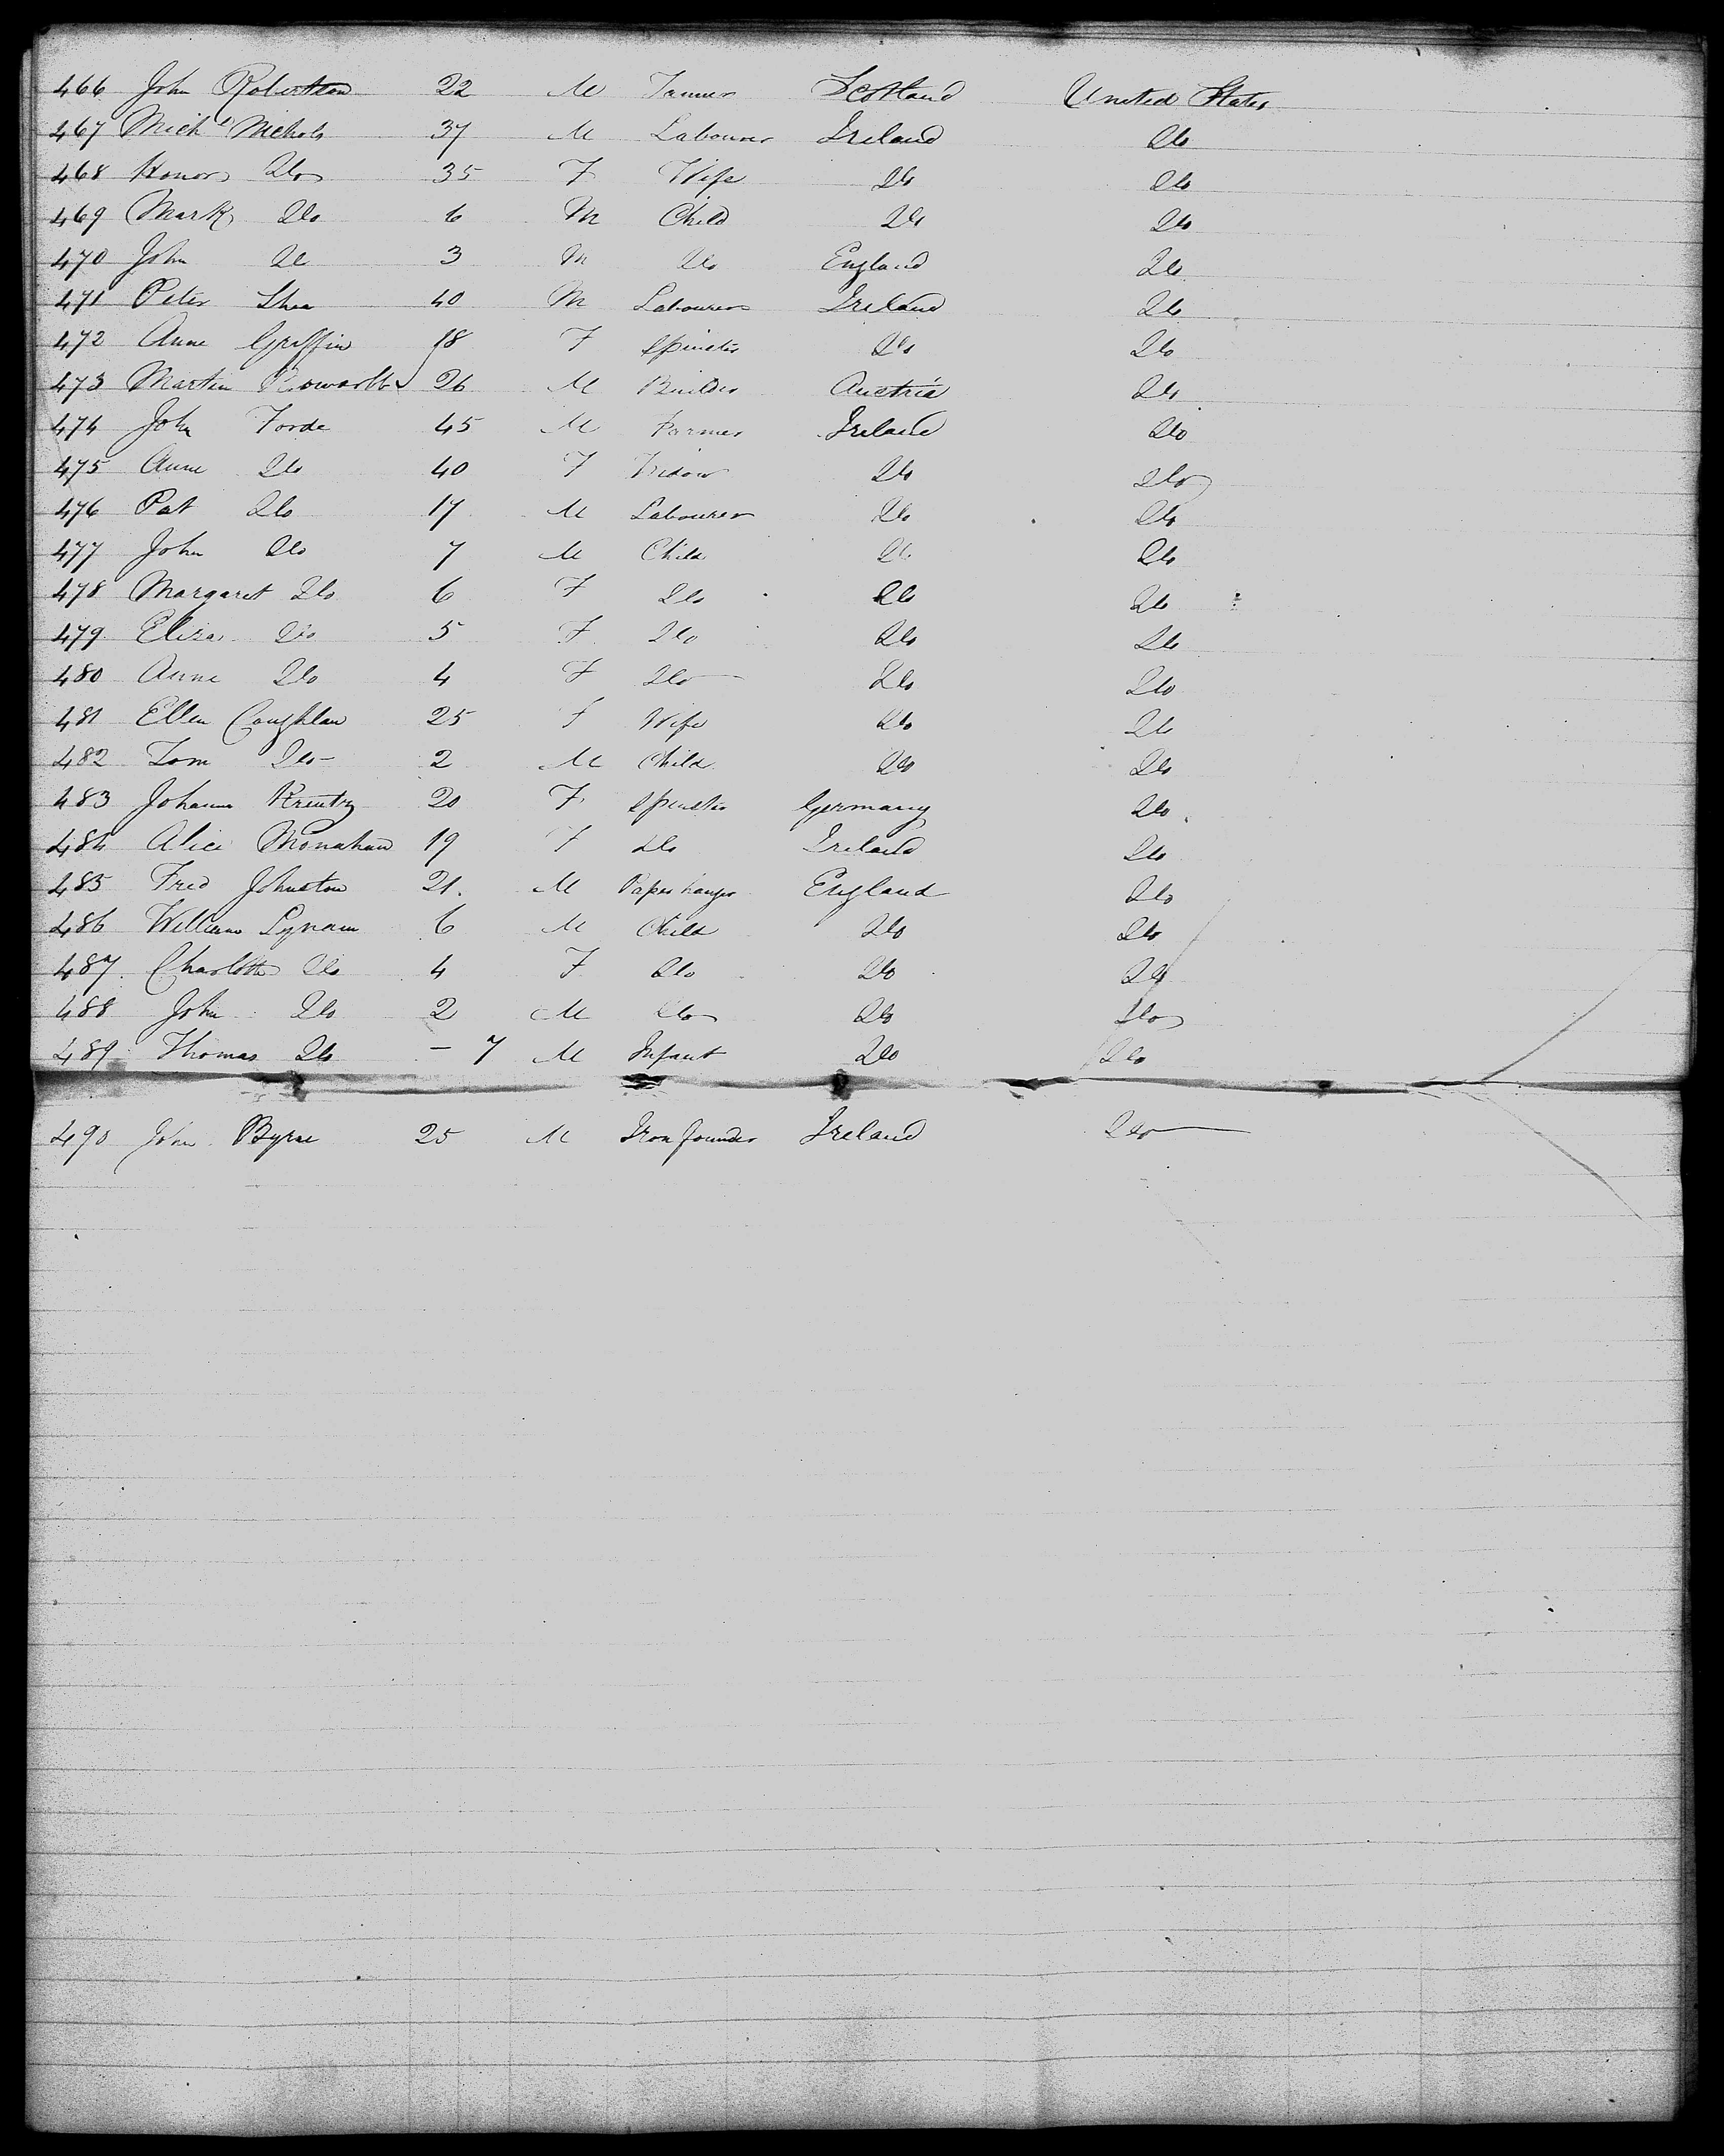 466 John Robertson 22 M Tanner Scotland United States
467 Michl Nichols 37 M Labourer Ireland Do
468 Honor Do 35 F Wife Do Do
469 Mark Do 6 M Child Do Do
470 John Do 3 M Do England Do
471 Peter Shea 40 M Labourer Ireland Do
472 Anne Griffin 18 F Spinster Do Do
473 Martin 26 M Builder Austria Do
474 John Forde 45 M Farmer Ireland Do
475 Anne Do 40 F Do Do
476 Pat Do 17 M Labourer Do Do
477 John Do 7 M Child Do Do
478 Margaret Do 6 F Do Do Do
479 Eliza Do 5 F Do Do Do
480 Anne Do 4 F Do Do Do
481 Ellen Coughlan 25 F Wife Do Do
482 Tom Do 2 M Child Do Do
483 Johanna Kreutz 20 F Spinster Germany Do
484 Alice Monahan 19 F Do Ireland Do
485 Fred Johnston 21 M Paper hanger England Do
486 William Lynam 6 M Child Do Do
487 Charlotte Do 4 F Do Do Do
488 John Do 2 M Do Do Do
489 Thomas Do - 7 M Infant Do Do
490 John Byrne 25 M Iron founder Ireland Do